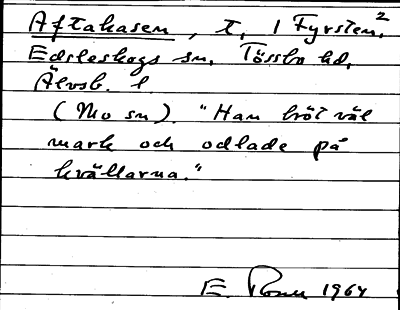 Aftakasen, t, 1 Fyrsten,²
Edsleskogs sn, Tössbo hd,
Älvsb. l
(Mo sn). "Han bröt väl
mark och odlade på
kvällarna."
E. 1964